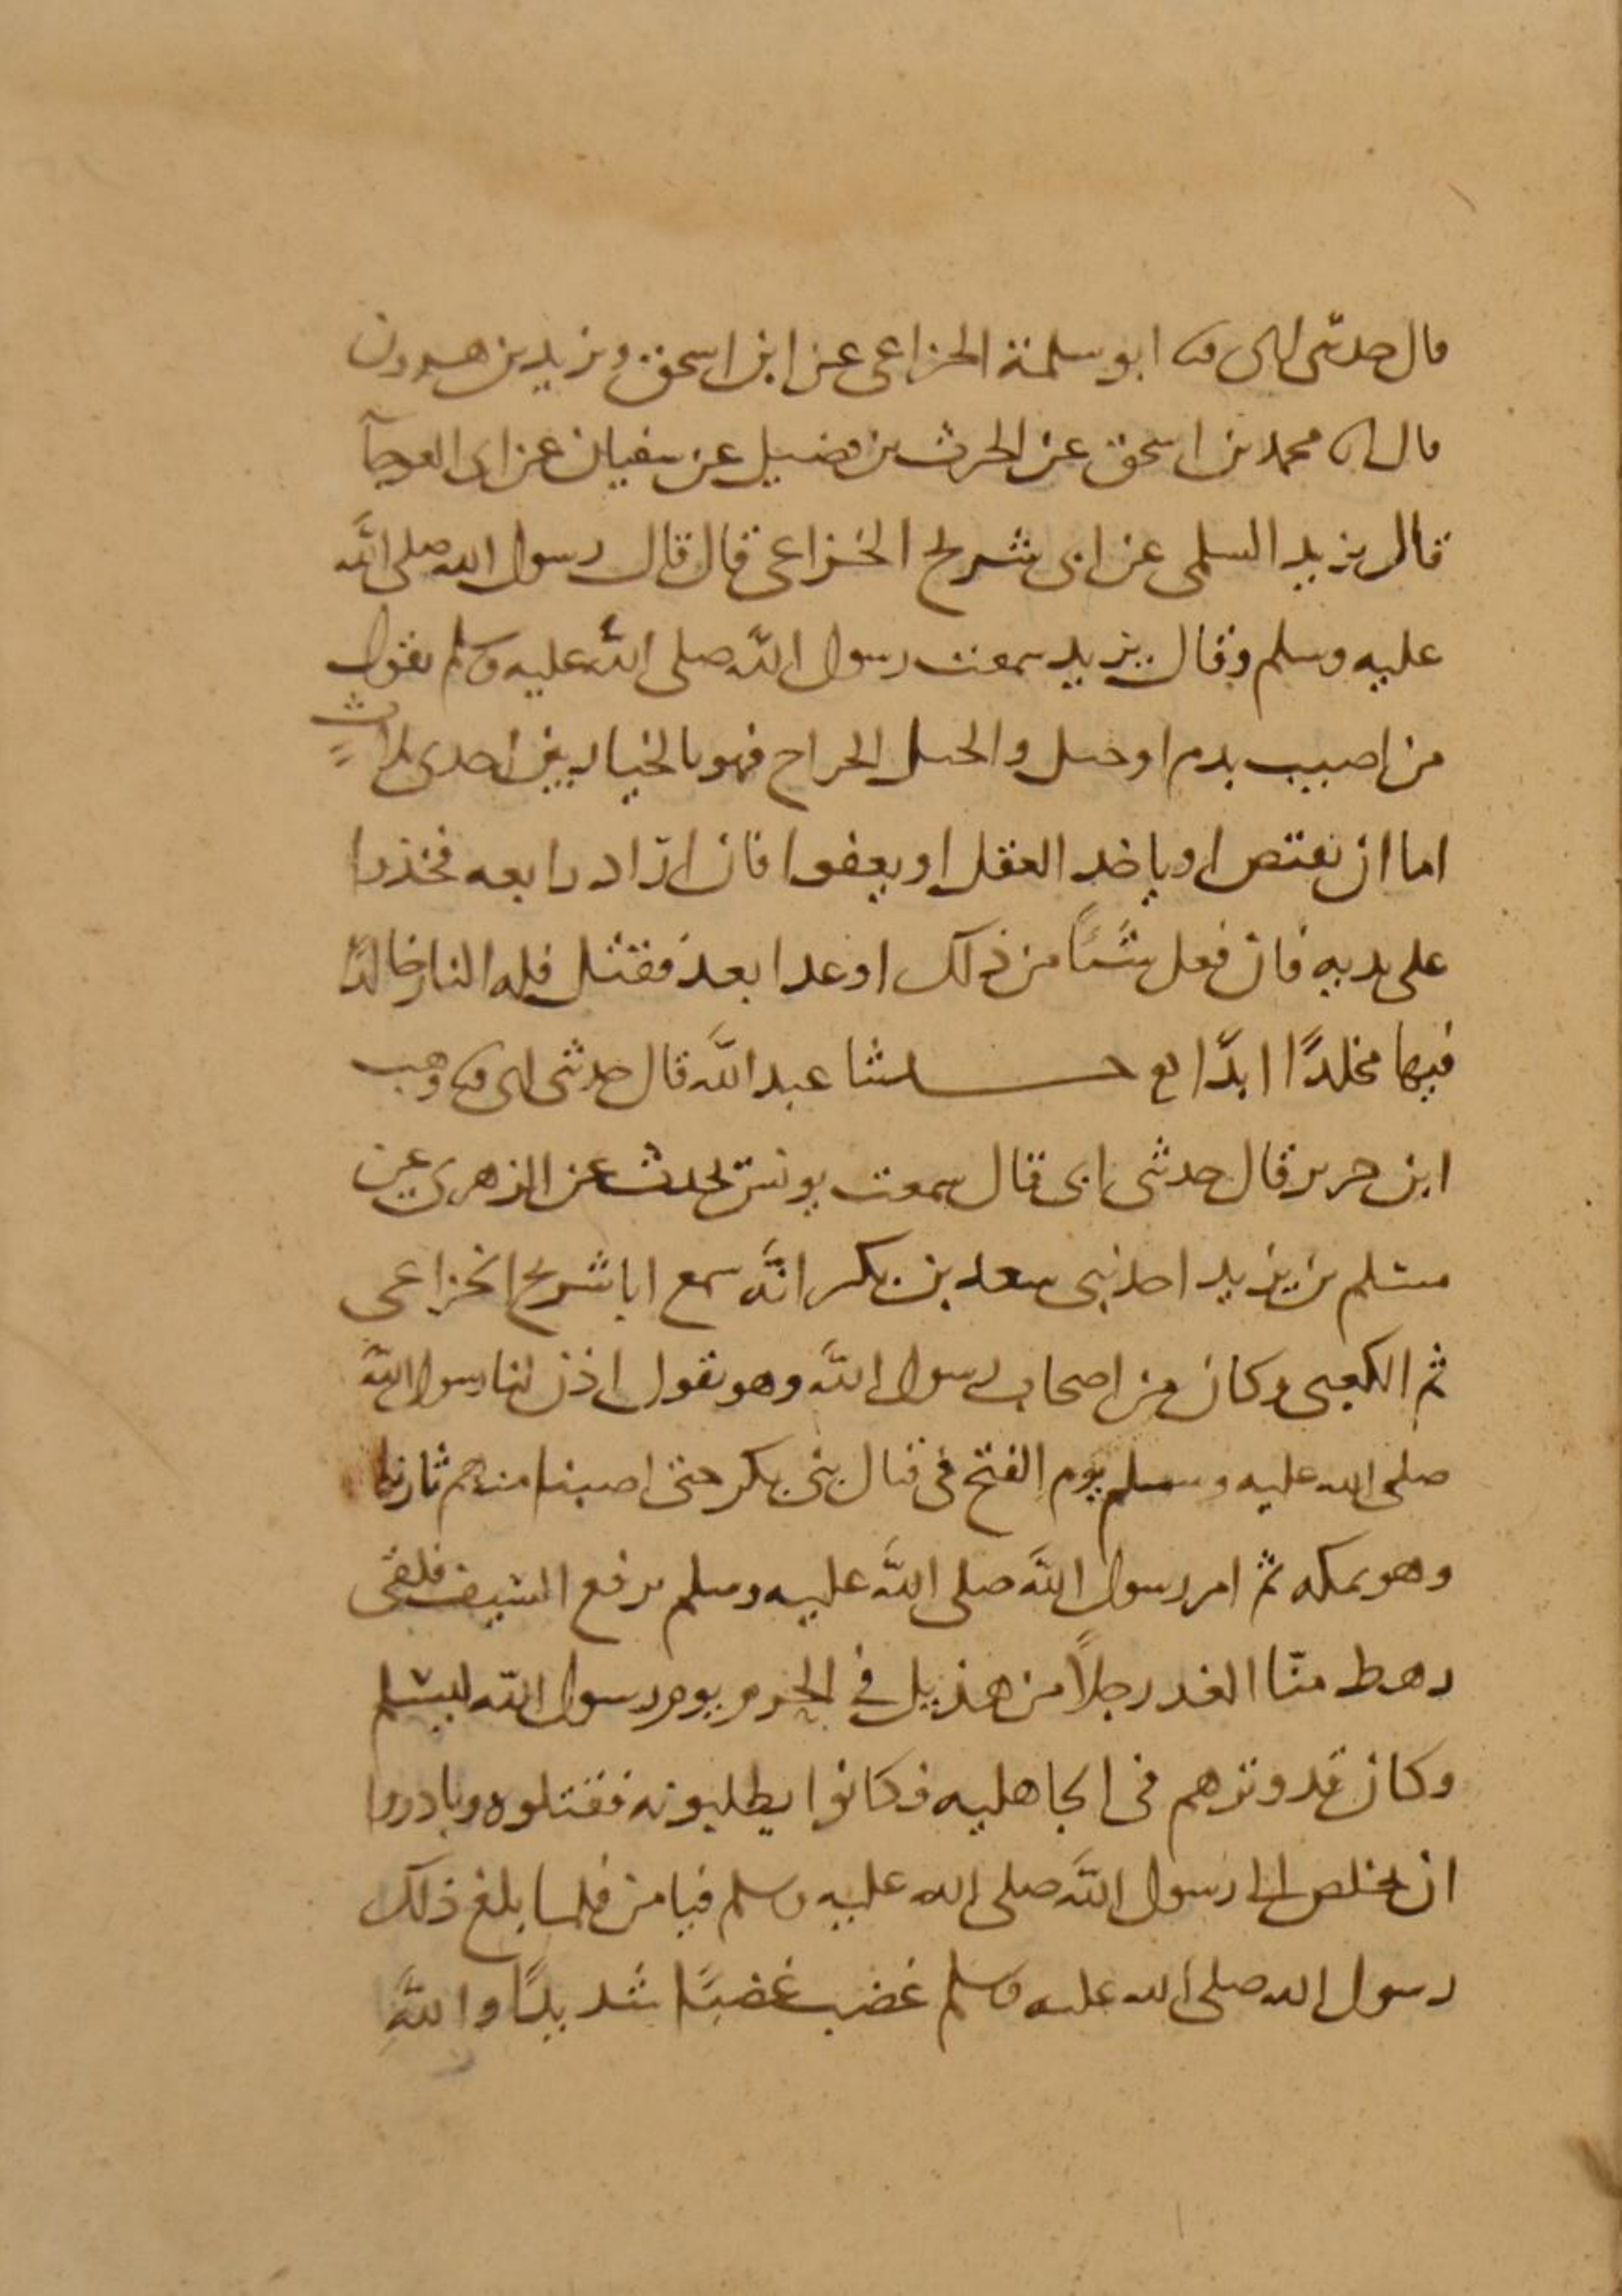 قال حدثنى ابى ثنا ابو سلمة الخزاعى عن ابن اسحق ويزيد بن هرون
قال انا محمد بن اسحق عن الحرث بن فضيل عن سفيان عن ابى العوجآ
قال يزيد السلمى عن ابى شريح الخزاعى قال قال رسول الله صلى الله
عليه وسلم وقال يزيد سمعت رسول الله صلى الله عليه وسلم يقول
من اصيب بدم او خبل والخبل الجراح فهو بالخيار بين احدى ثلاث
اما ان يقتص او ياخذ العقل او يعفوا فان اراد رابعه فخذوا
على يديه فان فعل شيئًا من ذلك او عدا بعد فقتل فله النار خالدًا
فيها مخلدًا ابدًا حدثنا عبد الله قال حدثنى ابى ثنا وهب
ابن جرير قال حدثنى ابى قال سمعت يونس يحدث عن الزهرى عن
مسلم بن يزيد احد بنى سعد بن بكر انه سمع ابا شريح الخزاعى
ثم الكعبى وكان من اصحاب رسول الله وهو يقول اذن لنا رسول الله
صلى الله عليه وسلم يوم الفتح فى قتال بنى بكر حتى اصبنا منهم ثارنا
وهو بمكه ثم امر رسول الله صلى الله عليه وسلم برفع السيف فلقى
رهط منّا الغد رجلًا من هذيل في الحرم يوم رسول الله ليسلم
وكان قد وترهم فى الجاهليه وكانوا يطلبونه فقتلوه وبادروا
ان يخلص الى رسول الله صلى الله عليه وسلم فيامن فلما بلغ ذلك
رسول الله صلى الله عليه وسلم غضب غضبًا شديدًا والله